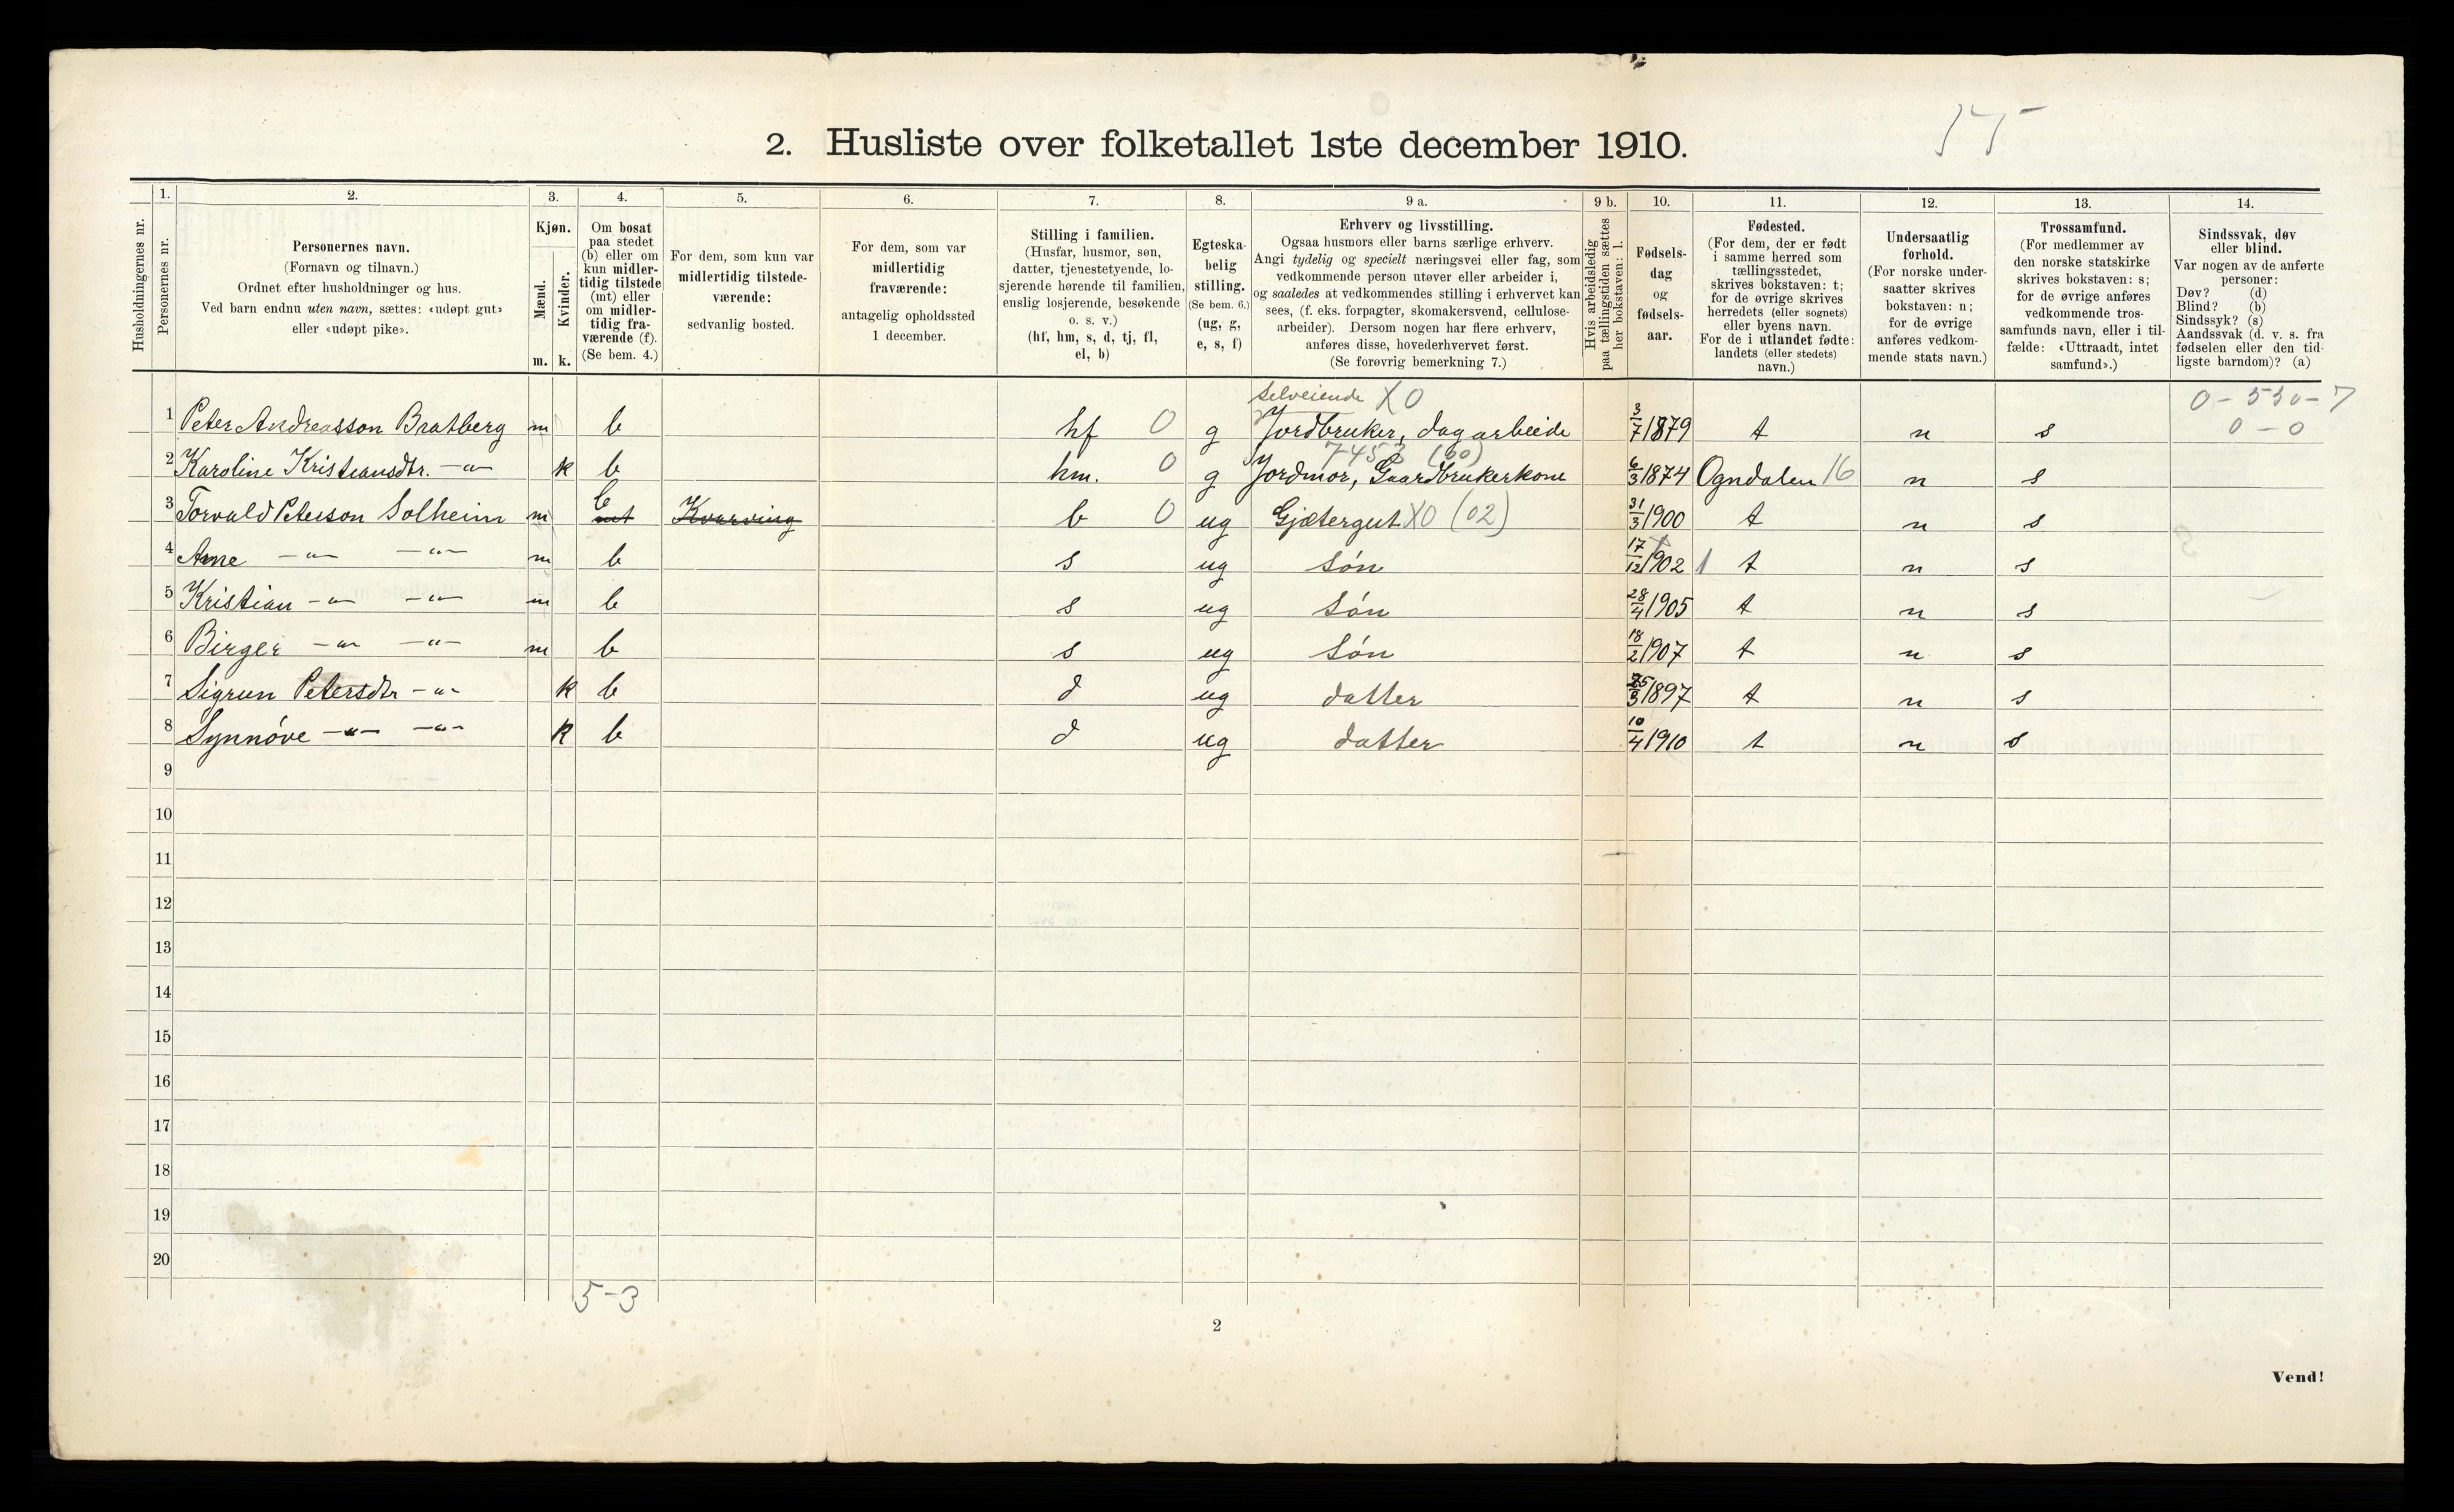 15
2. Husliste over folketallet 1ste december 1910.
Husholdningernes nr.
1.
Personernes nr.
2.
Personernes navn.
(Fornavn og tilnavn.)
Ordnet efter husholdninger og hus.
Ved barn endnu uten navn, sættes: «udøpt gut»
eller «udøpt pike».
3.
Kjøn.
Mænd. Kvinder.
m. k.
4.
Om bosat
paa stedet
(b) eller om
kun midler-
tidig tilstede
(mt) eller
om midler-
tidig fra-
værende (f).
(Se bem. 4.)
5.
For dem, som kun var
midlertidig tilstede-
værende:
sedvanlig bosted.
6.
For dem, som var
midlertidig
fraværende:
antagelig opholdssted
1 december.
7.
Stilling i familien.
(Husfar, husmor, søn,
datter, tjenestetyende, lo-
sjerende hørende til familien,
enslig losjerende, besøkende
o. s. v.)
(hf, hm, s, d, tj, fl,
el, b)
8.
Egteska-
belig
stilling.
(Se bem. 6.)
(ug, g,
e, s, f)
9 a.
Erhverv og livsstilling.
Ogsaa husmors eller barns særlige erhverv.
Angi tydelig og specielt næringsvei eller fag, som
vedkommende person utøver eller arbeider i,
og saaledes at vedkommendes stilling i erhvervet kan
sees, (f. eks. forpagter, skomakersvend, cellulose-
arbeider). Dersom nogen har flere erhverv,
anføres disse, hovederhvervet først.
(Se forøvrig bemerkning 7.)
9 b.
Hvis arbeidsledig
paa tællingstiden sættes
her bokstaven: l.
10.
Fødsels-
dag
og
fødsels-
aar.
11.
Fødested.
(For dem, der er født
i samme herred som
tællingsstedet,
skrives bokstaven: t;
for de øvrige skrives
herredets (eller sognets)
eller byens navn.
For de i utlandet fødte:
landets (eller stedets)
navn.)
12.
Undersaatlig
forhold.
(For norske under-
saatter skrives
bokstaven: n;
for de øvrige
anføres vedkom-
mende stats navn.)
13.
Trossamfund.
(For medlemmer av
den norske statskirke
skrives bokstaven: s;
for de øvrige anføres
vedkommende tros-
samfunds navn, eller i til-
fælde: «Uttraadt, intet
samfund».)
14.
Sindssvak, døv
eller blind.
Var nogen av de anførte
personer:
Døv? (d)
Blind? (b)
Sindssyk? (s)
Aandssvak (d. v. s. fra
fødselen eller den tid-
ligste barndom)? (a)
selveiende X0 0-530-7
1 Peter Andreasson Bratberg m b hf 0 g Jordbruker, dagarbeide 3/7 1879 t n s 0-0
7453 (60)
2 Karoline Kristiansdtr. -"- k b hm. 0 g Jordmor, Gaardbrukerkone 6/3 1874 Ogndalen 16 n s
3 Torvald Peterson Solheim m b mt Kvarving b 0 ug Gjætergut X0 (02) 31/3 1900 t n s
4 Arne -"- -"- m b s ug søn 17/12 1902 1 t n s
5 Kristian -"- -"- m b s ug søn 28/4 1905 t n s
6 Birger -"- -"- m b s ug søn 18/2 1907 t n s
7 Sigrun Petersdtr -"- k b d ug datter 25/3 1897 t n s
8 Synnöve -"- -"- k b d ug datter 10/4 1910 t n s
9
10
11
12
13
14
15
16
17
18
19
20
5-3
2
Vend!